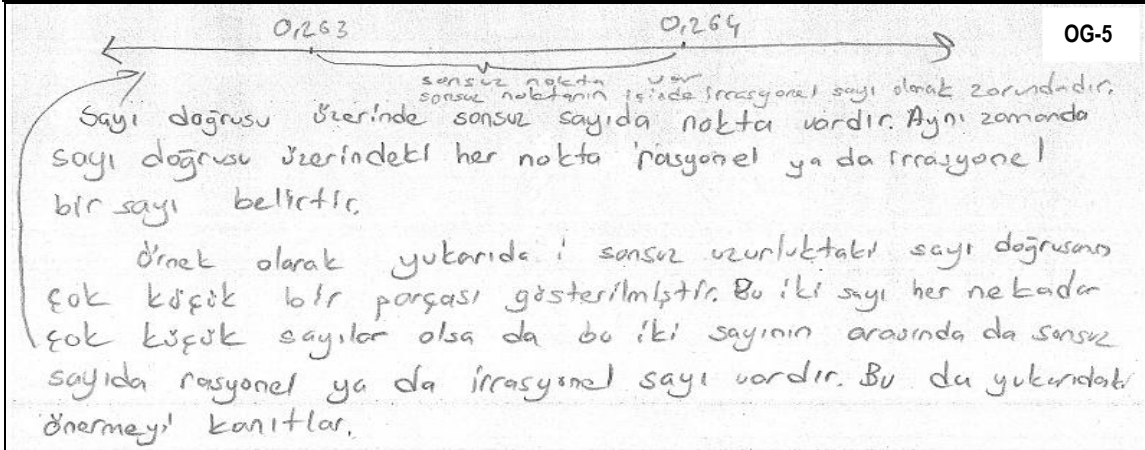 0,263 0,264
OG-5
sonsuz nokta var
sonsuz noktanın içinde irrasyonel sayı olmak zorundadır.
Sayı doğrusu üzerinde sonsuz sayıda nokta vardır. Aynı zamanda
sayı doğrusu üzerindeki her nokta rasyonel ya da irrasyonel
bir sayı belirtir.
Örnek olarak yukarıda i sonsuz uzunluktaki sayı doğrusunun
çok küçük bir parçası gösterilmiştir. Bu iki sayı her nekadar
çok küçük sayılar olsa da bu iki sayının arasında da sonsuz
sayıda rasyonel ya da irrasyonel sayı vardır. Bu da yukarıdaki
önermeyi kanıtlar.